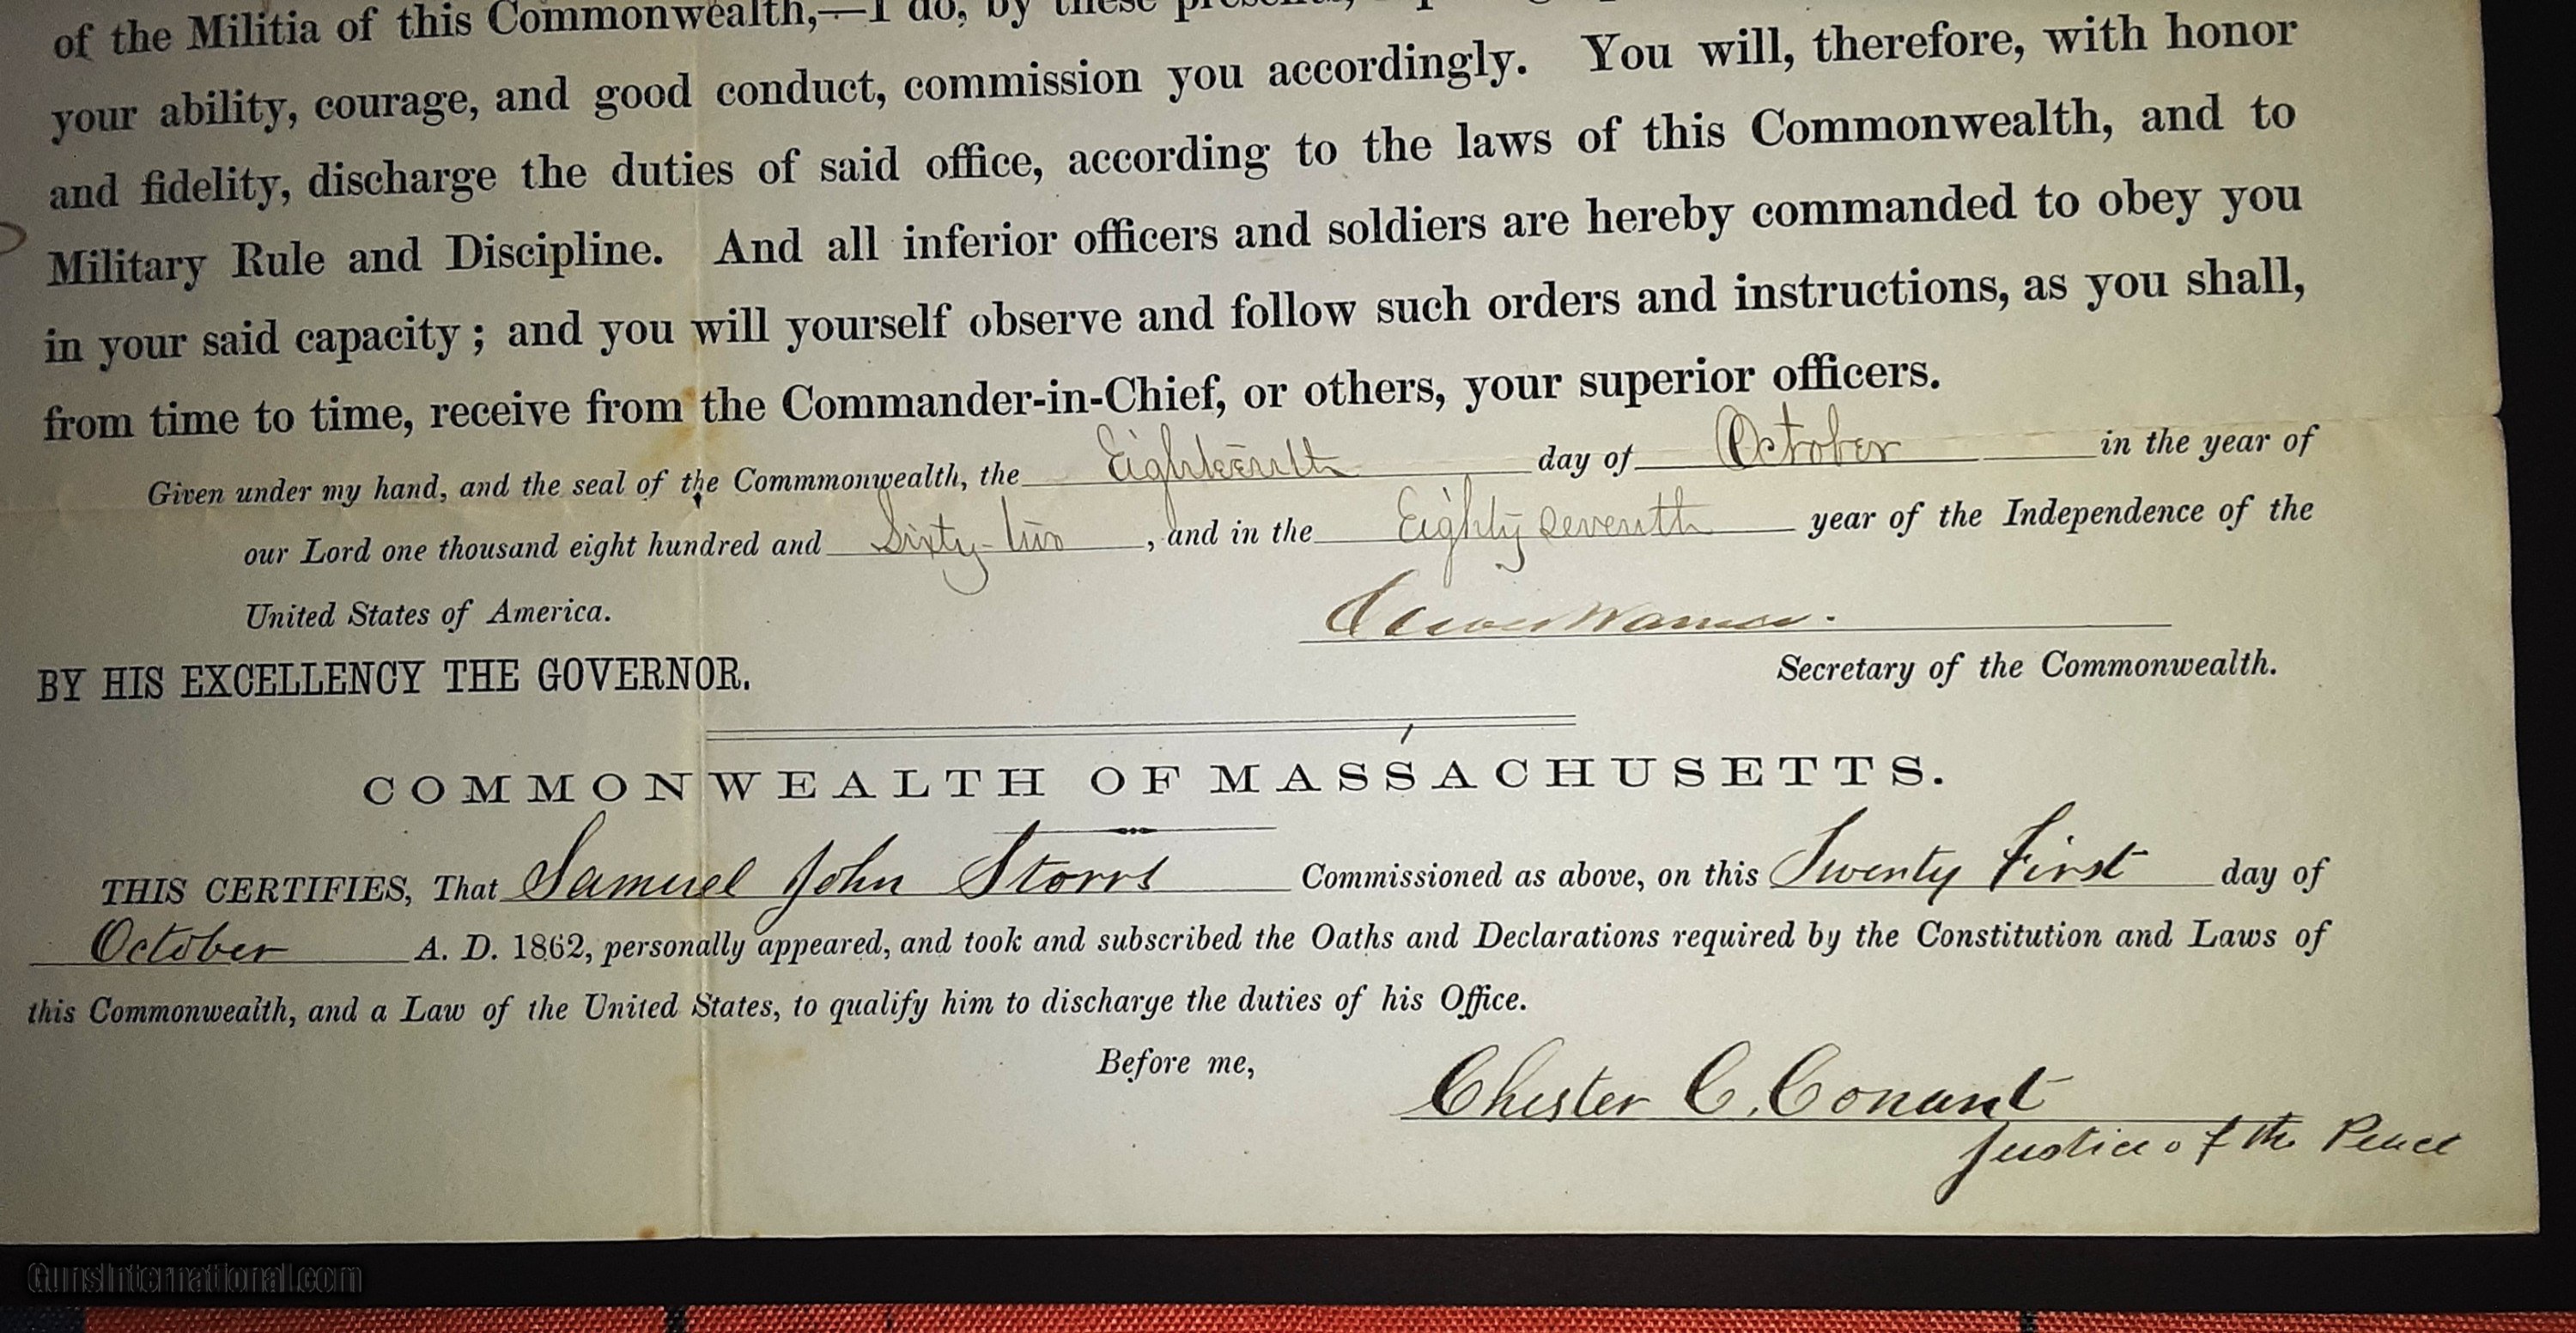 of the Militia of this Commonwealth,—I do, by these
your ability, courage, and good conduct, commission you accordingly. You will, therefore, with honor
and fidelity, discharge the duties of said office, according to the laws of this Commonwealth, and to
Military Rule and Discipline. And all inferior officers and soldiers are hereby commanded to obey you
in your said capacity; and you will yourself observe and follow such orders and instructions, as you shall,
from time to time, receive from the Commander-in-Chief, or others, your superior officers.
Given under my hand, and the seal of the Commmonwealth, the Eighteenth day of October in the year of
our Lord one thousand eight hundred and Sixty-two, and in the Eighty Seventh year of the Independence of the
United States of America.
Oliver Warner.
BY HIS EXCELLENCY THE GOVERNOR.
Secretary of the Commonwealth.
COMMONWEALTH OF MASSACHUSETTS.
THIS CERTIFIES, That Samuel John Storrs Commissioned as above, on this Twenty First day of
October A. D. 1862, personally appeared, and took and subscribed the Oaths and Declarations required by the Constitution and Laws of
this Commonwealth, and a Law of the United States, to qualify him to discharge the duties of his Office.
Before me,
Chester C. Conant
Justice of the Peace
GunsInternational.com